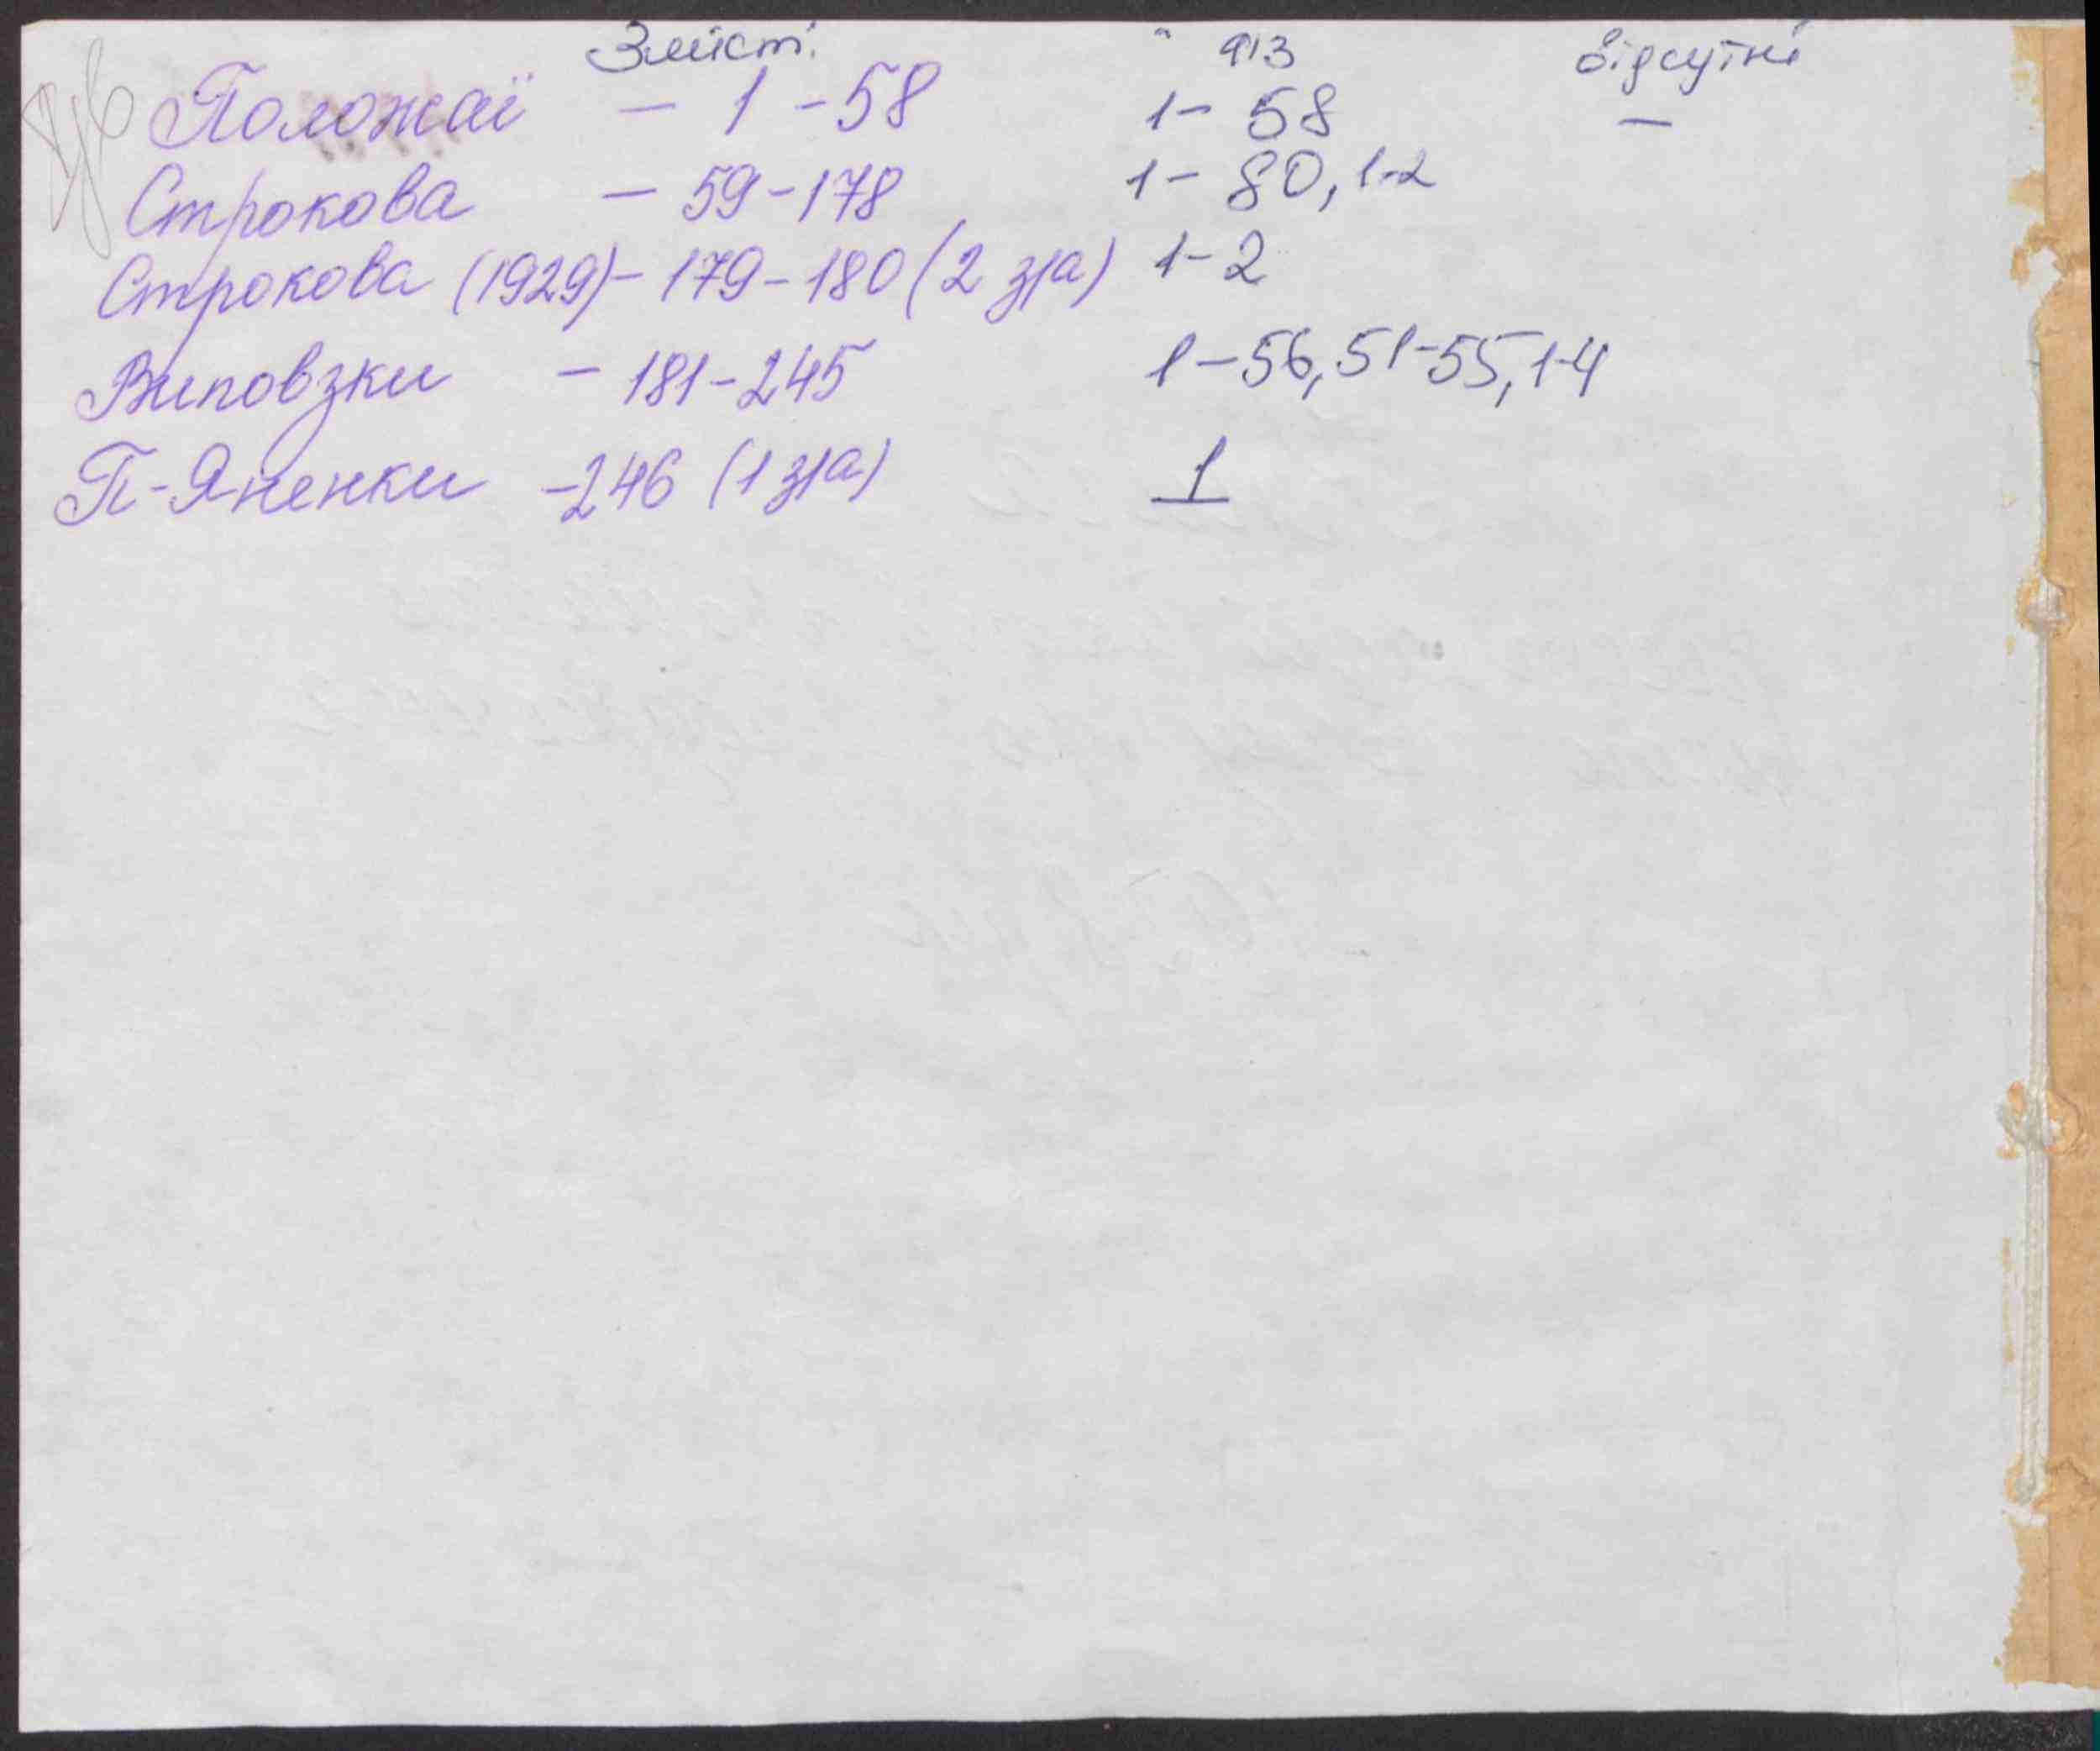 Зміст: а/з відсутні
Положаї – 1 – 58 1 – 58 –
Строкова – 59 – 178 1 – 80, 1-2
Строкова (1929) – 179 – 180 (2 з/а) 1 – 2
Виповзки – 181 – 245 1 – 56, 51-55, 1-4
П-Яненки – 246 (1 з/а) 1